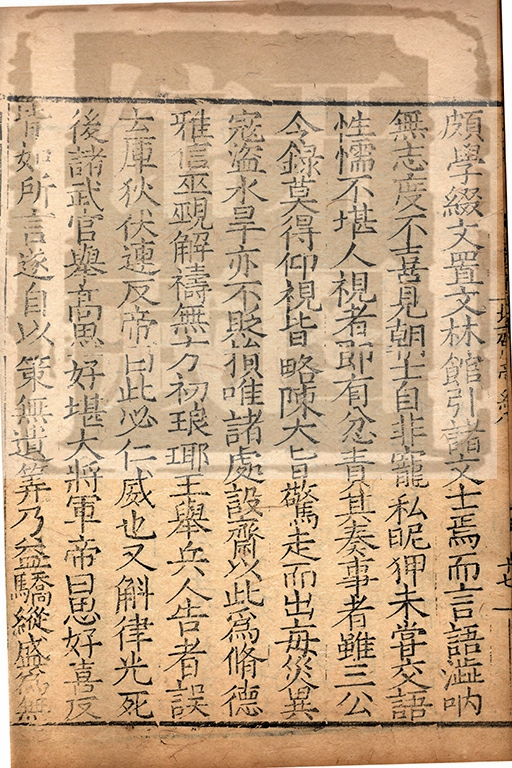 頗學綴文置文林館引諸文士焉而言語澁吶
無志度不喜見朝士自非寵私昵狎未嘗交語
性懦不堪人視者即有忿責其奏事者雖三公
令録莫得仰視皆略陳大旨驚走而出每災異
寇盜水旱亦不貶損唯諸處設齋以此爲脩德
雅信巫覡解禱無方初琅邪王舉兵人告者誤
云庫狄伏連反帝曰此必仁威也又斛律光死
後諸武官舉高思好堪大將軍帝曰思好喜反
皆如所言遂自以策無遺筭乃益驕縱盛爲無